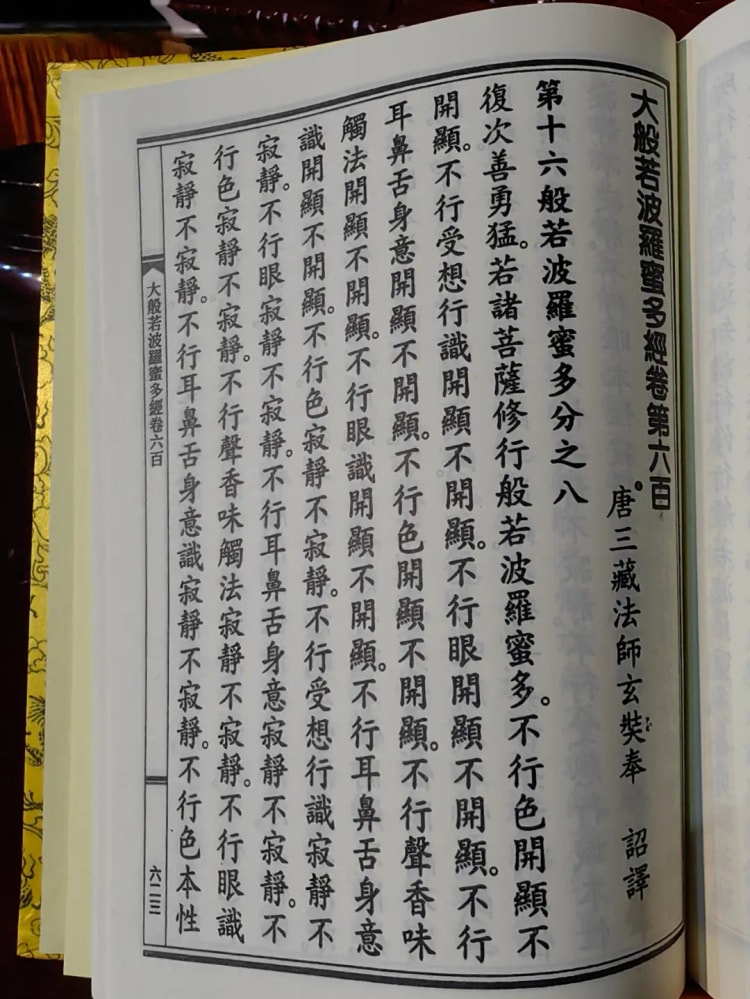 大般若波羅蜜多經卷第六百
唐三藏法師玄奘奉 詔譯
第十六般若波羅蜜多分之八
復次善勇猛。若諸菩薩修行般若波羅蜜多。不行色開顯不
開顯。不行受想行識開顯不開顯。不行眼開顯不開顯。不行
耳鼻舌身意開顯不開顯。不行色開顯不開顯。不行聲香味
觸法開顯不開顯。不行眼識開顯不開顯。不行耳鼻舌身意
識開顯不開顯。不行色寂靜不寂靜。不行受想行識寂靜不
寂靜。不行眼寂靜不寂靜。不行耳鼻舌身意寂靜不寂靜。不
行色寂靜不寂靜。不行聲香味觸法寂靜不寂靜。不行眼識
寂靜不寂靜。不行耳鼻舌身意識寂靜不寂靜。不行色本性
大般若波羅蜜多經卷六百
六二三